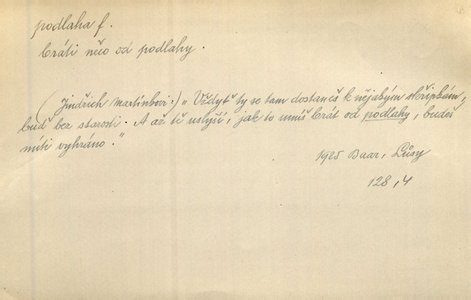 podlaha f.
bráti něco od podlahy.
(Jindřich Martinbur:) „Vždyť ty se tam dostaneš k nějakým skřipkám,
buď bez starosti. A až tě uslyší, jak to umíš brát od podlahy, budeš
míti vyhráno."
1925 Baar, Lůsy
128,4